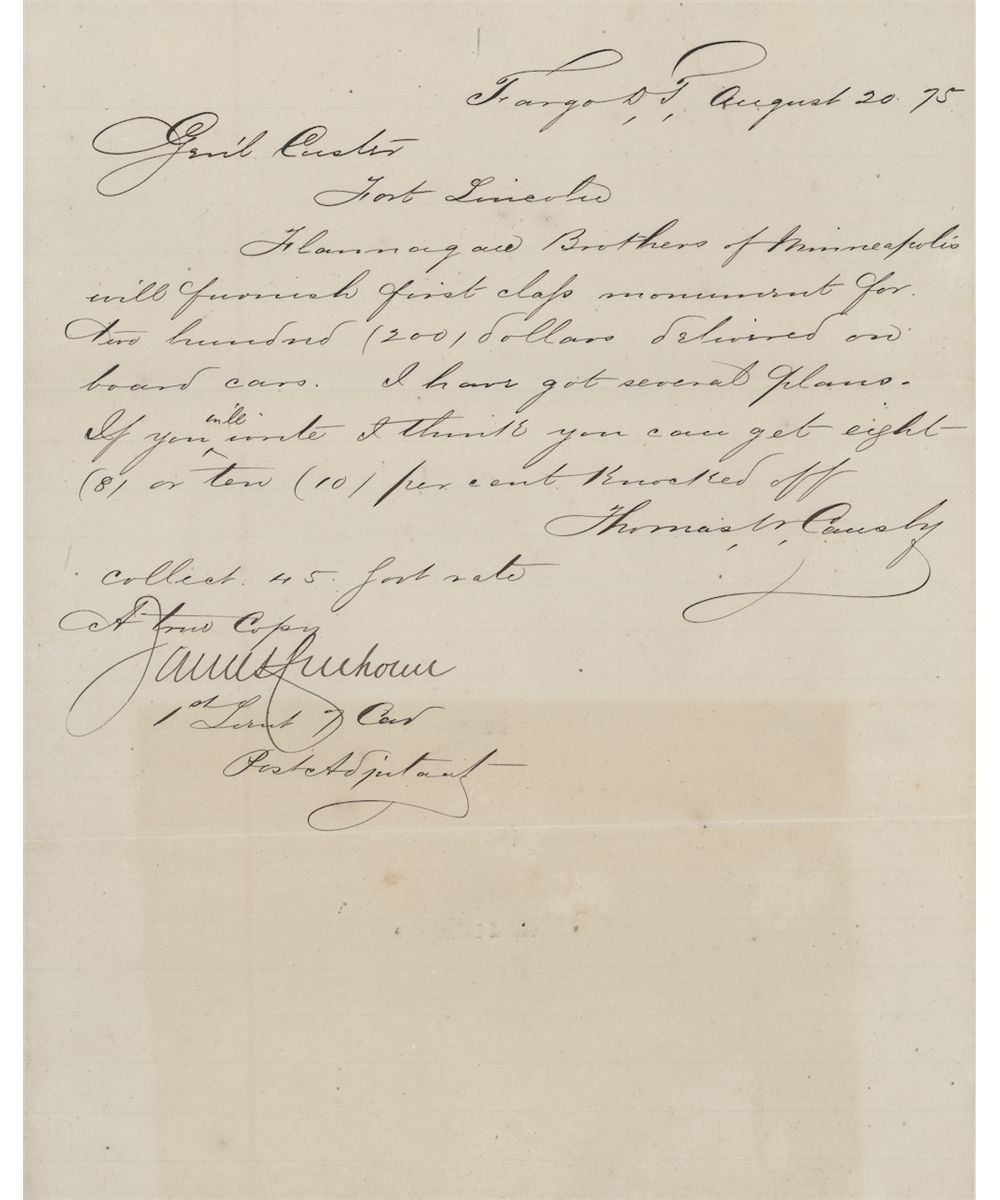 Fargo D, T, August 20. 75
Gen'l Custer
Fort Lincoln
Flannagan Brothers of Minneapolis
will furnish first class monument for.
two hundred (200) dollars delivered on
board cars. I have got several plans.
If you will write I think you can get eight
(8) or ten (10) per cent knocked off
Thomas, W, Causby
collect. 45. fort rate
A true Copy
James Calhoun
1st Lieut 7 Cav
Post Adjutant